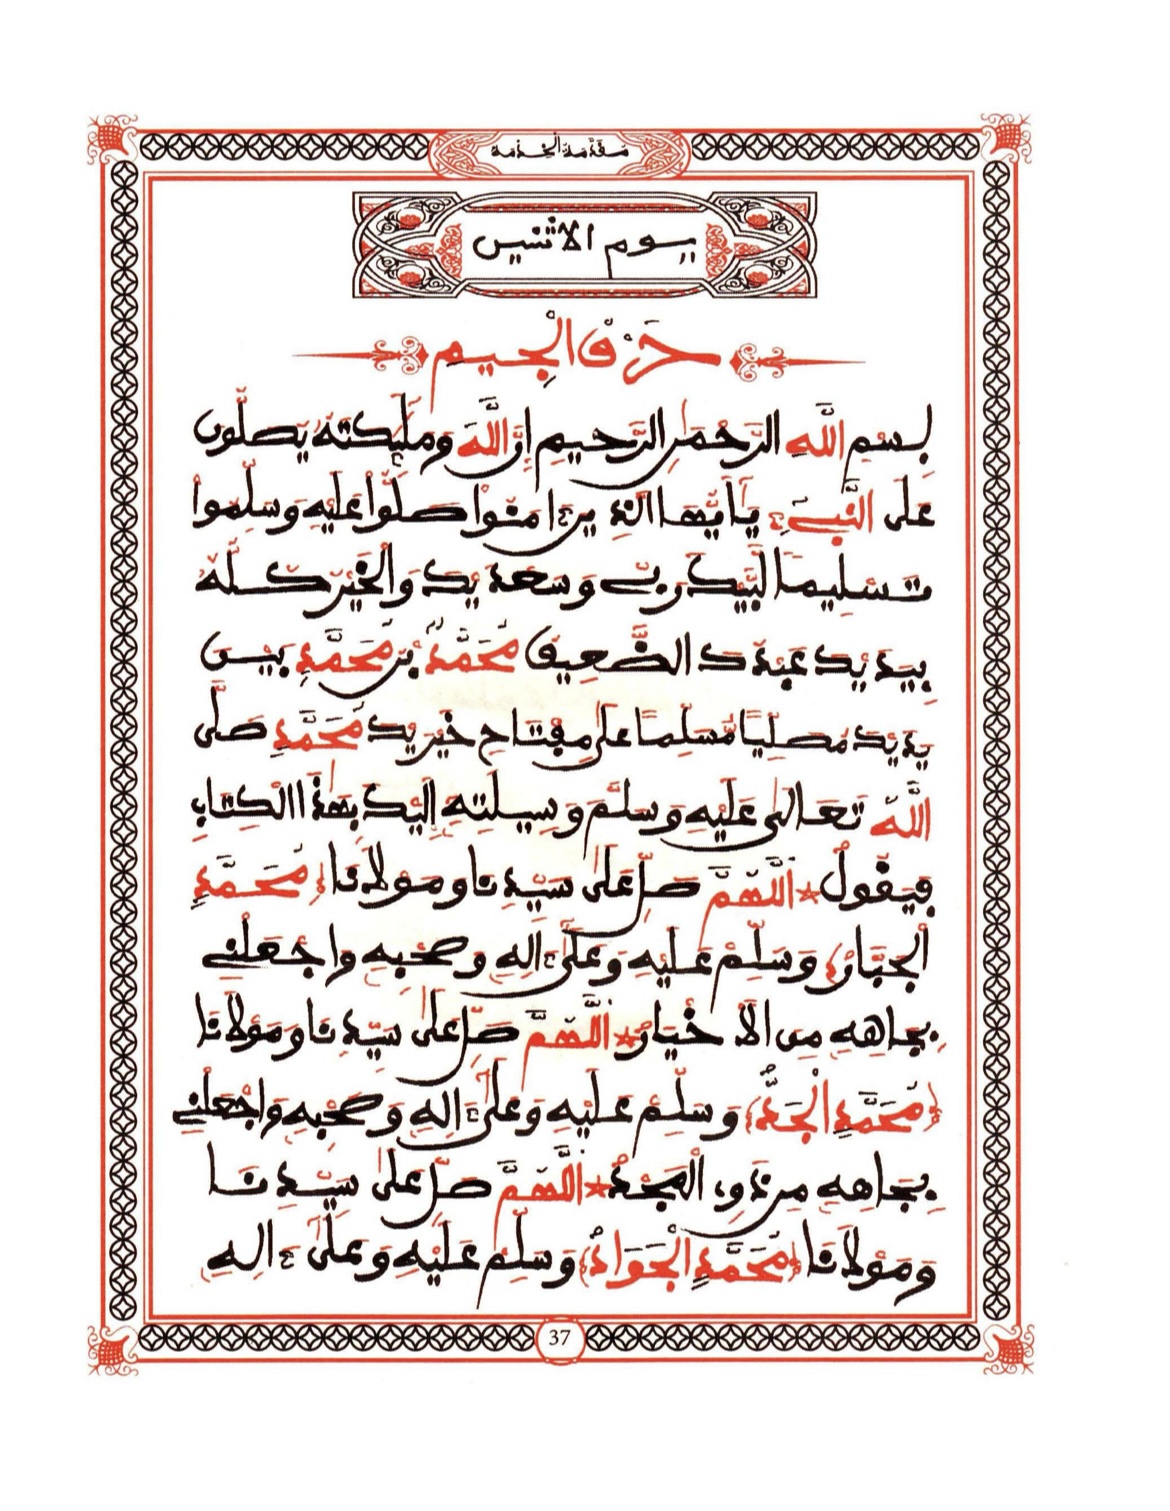 مقدمة الخدمة
يوم الاثنين
حَرْفُ الْجِيمِ
بِسْمِ اللَّهِ الرَّحْمَنِ الرَّحِيمِ إِنَّ اللَّهَ وَمَلَٰئِكَتَهُ يُصَلُّونَ
عَلَى النَّبِيِّ يَٰأَيُّهَا الذِينَ ءَامَنُوا صَلُّوا عَلَيْهِ وَسَلِّمُوا
تَسْلِيمًا لَبَّيْكَ رَبِّي وَسَعْدَيْكَ وَالْخَيْرُ كُلُّهُ
بِيَدَيْكَ عَبْدُكَ الضَّعِيفُ مُحَمَّدُ بْنُ مُحَمَّدٍ بَيْنَ
يَدَيْكَ مُصَلِّيًا مُسَلِّمًا عَلَى مِفْتَاحِ خَيْرِكَ مُحَمَّدٍ صَلَّى
اللَّهُ تَعَالَى عَلَيْهِ وَسَلَّمَ وَسِيلَتِهِ إِلَيْكَ بِهَذَا الْكِتَابِ
فَيَقُولُ * اللَّهُمَّ صَلِّ عَلَى سَيِّدِنَا وَمَوْلَانَا (مُحَمَّدٍ
الْجَبَّارِ) وَسَلِّمْ عَلَيْهِ وَعَلَى ءَالِهِ وَصَحْبِهِ وَاجْعَلْنِي
بِجَاهِهِ مِنَ الْأَخْيَارِ * اللَّهُمَّ صَلِّ عَلَى سَيِّدِنَا وَمَوْلَانَا
(مُحَمَّدٍ الْجَدِّ) وَسَلِّمْ عَلَيْهِ وَعَلَى ءَالِهِ وَصَحْبِهِ وَاجْعَلْنِي
بِجَاهِهِ مِنْ ذَوِي الْمَجْدِ * اللَّهُمَّ صَلِّ عَلَى سَيِّدِنَا
وَمَوْلَانَا (مُحَمَّدٍ الْجَوَادِ) وَسَلِّمْ عَلَيْهِ وَعَلَى ءَالِهِ
37